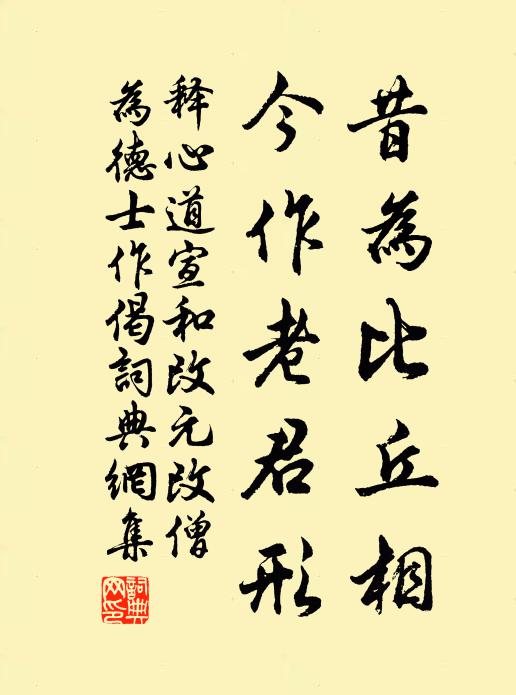 昔為比丘相
今作老君形
释心道宣和改元改僧
為德士作偈詞典網集
詞典网印